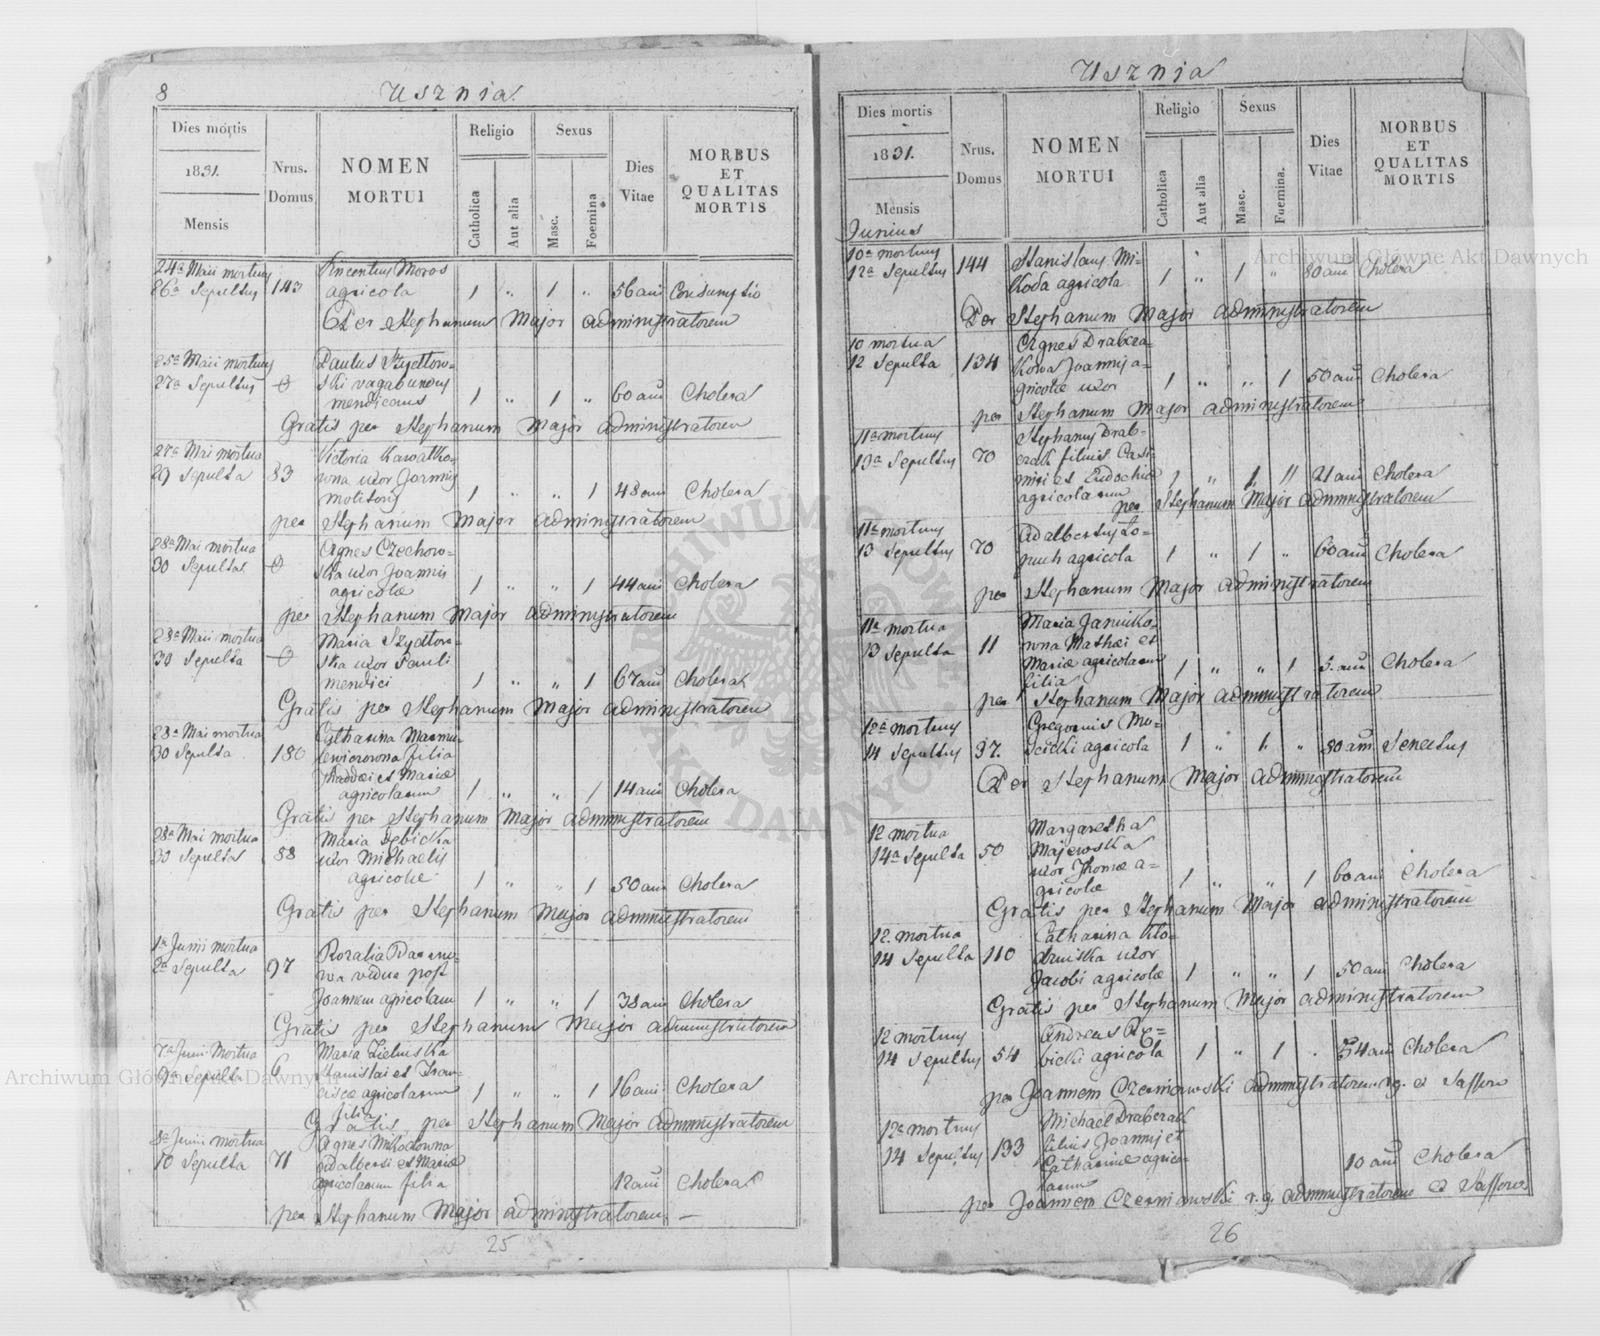 8
Usznia.
Dies mortis
1831.
Mensis
Nrus.
Domus
NOMEN
MORTUI
Religio
Catholica
Aut alia
Sexus
Masc.
Foemina
Dies
Vitae
MORBUS
ET
QUALITAS
MORTIS
24a Maii mortuus
26a Sepultus 143
Vincentius Moros
agricola 1 " 1 " 56 ann Consumptio
Per Stephanum Major administratorem
25a Maii mortuus
27a Sepultus 0
Paulus Szydłow-
ski vagabundus
mendicans 1 " 1 " 60 ann Cholera
Gratis per Stephanum Major administratorem
27a Mai mortua
29 Sepulta 83
Victoria
wna uxor Joannis
molitoris 1 " " 1 48 ann Cholera
per Stephanum Major administratorem
28a Mai mortua
30 Sepulta 0
Agnes Czechow-
ska uxor Joannis
agricolae 1 " " 1 44 ann Cholera
per Stephanum Major administratorem
28a Maii mortua
30 Sepulta 0
Maria Szydłow-
ska uxor Pauli
mendici 1 " " 1 67 ann Cholera
Gratis per Stephanum Major administratorem
28a Mai mortua
30 Sepulta 180
Catharina
filia
Thaddei et Mariae
agricolarum 1 " " 1 14 ann Cholera
Gratis per Stephanum Major administratorem
28a Mai mortua
30 Sepulta 88
Maria Dębicka
uxor Michaelis
agricolae 1 " " 1 50 ann Cholera
Gratis per Stephanum Major administratorem
1a Junii mortua
2a Sepulta 97
Rozalia
wa vidua post
Joannem agricolam 1 " " 1 38 ann Cholera
Gratis per Stephanum Major administratorem
7a Junii Mortua
9a Sepulta 6
Maria Zielinska
Stanislai et Fran-
ciscae agricolarum 1 " " 1 16 ann Cholera
filia
Gratis per Stephanum Major administratorem
8a Junii mortua
10 Sepulta 71
Agnes Mikodowna
Adalberti et Mariae
agricolarum filia 12 ann Cholera
per Stephanum Major administratorem —
25
Usznia
Dies mortis
1831.
Mensis
Junius
Nrus.
Domus
NOMEN
MORTUI
Religio
Catholica
Aut alia
Sexus
Masc.
Foemina.
Dies
Vitae
MORBUS
ET
QUALITAS
MORTIS
10a mortuus
12a Sepultus 144
Stanislaus Mi-
koda agricola 1 " 1 " 80 ann Cholera
Per Stephanum Major administratorem
10 mortua
12 Sepulta 134
Agnes Drabcza-
kowa Joannis a-
gricolae uxor 1 " " 1 50 ann Cholera
per Stephanum Major administratorem
11a mortuus
13a Sepultus 70
Stephanus Drab-
czak filius Casi-
miri et Eudochiae
agricolarum 1 " 1 " 21 ann Cholera
per Stephanum Major administratorem
11a mortuus
13 Sepultus 70
Adalbertus Ło-
puch agricola 1 " 1 " 60 ann Cholera
per Stephanum Major administratorem
11a mortua
13 Sepulta 11
Maria Janicko-
wna Mathei et
Mariae agricolarum 1 " " 1 5. ann Cholera
filia
per Stephanum Major administratorem
12a mortuus
14 Sepultus 97.
Gregorius Mo-
scicki agricola 1 " 1. " 80 ann Senectus
Per Stephanum Major administratorem
12 mortua
14a Sepulta 50
Margaretha
Majewska
uxor Thomae a-
gricolae 1 " " 1 60 ann Cholera
Gratis per Stephanum Major administratorem
12. mortua
14 Sepulta 110
Catharina Kło-
dzinska uxor
Jacobi agricolae 1 " " 1 50 ann Cholera
Gratis per Stephanum Major administratorem
12 mortuus
14 Sepultus 54
Andreas Dę-
bicki agricola 1 " 1 . 54 ann Cholera
per Joannem Czerniawski administratorem r. g. e Sassow
12a mortuus
14 Sepultus 133
Michael Drabczak
filius Joannis et
Catharinae agrico-
larum 10 ann Cholera
per Joannem Czerniawski r. g. administratorem e Sassow
26
Archiwum Główne Akt Dawnych
Archiwum Główne Akt Dawnych
ARCHIWUM GŁÓWNE AKT DAWNYCH